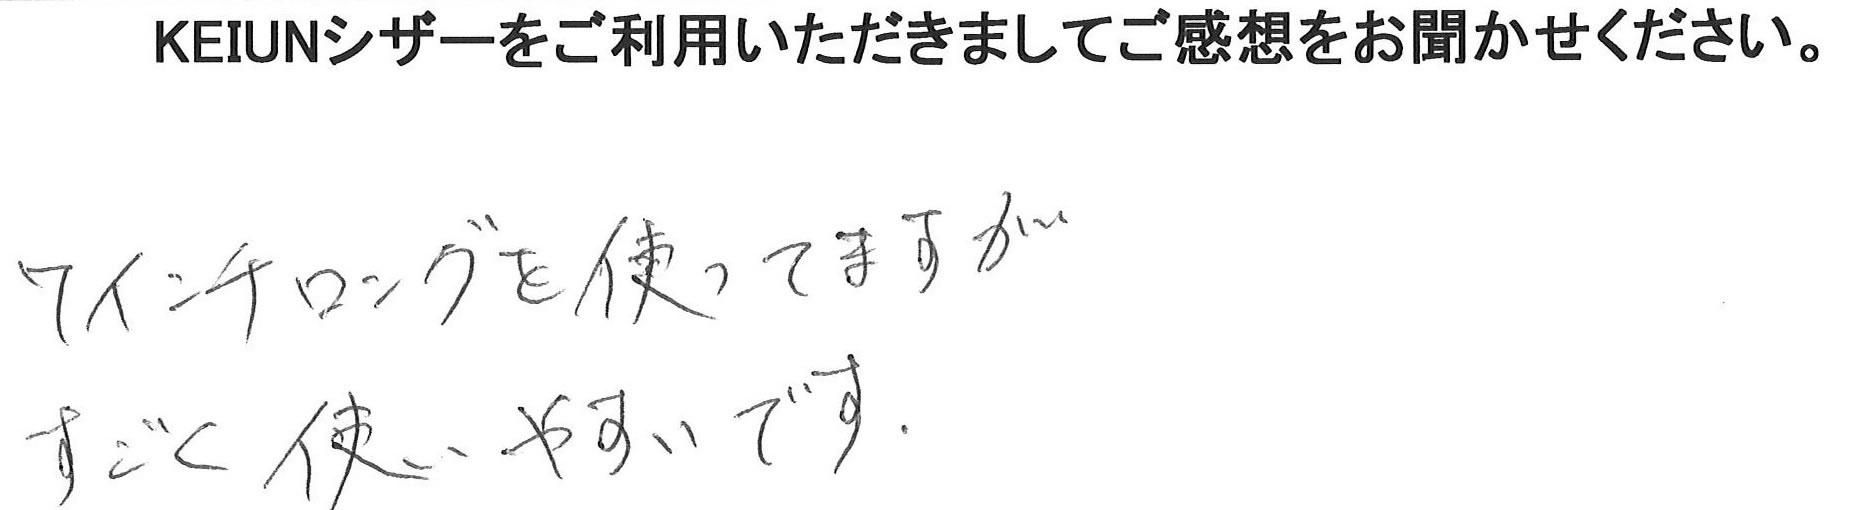 KEIUNシザーをご利用いただきましてご感想をお聞かせください。
7インチロングを使ってますが
すごく使いやすいです.